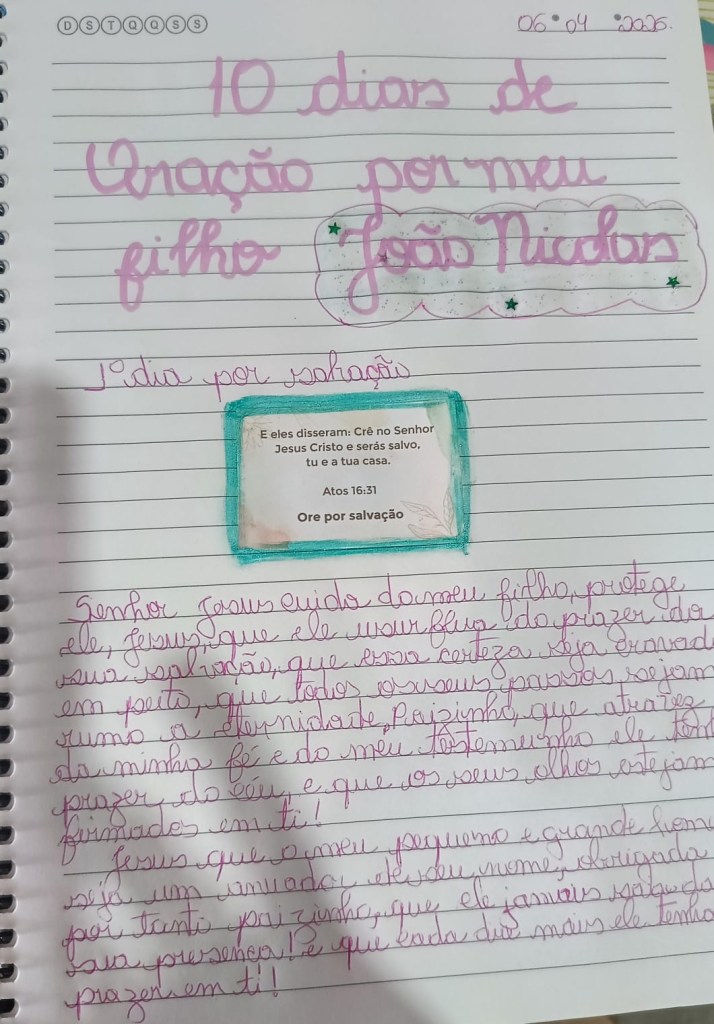 D S T Q Q S S
06 04 2026
10 dias de
Oração por meu
filho João Nicolas
1º dia por salvação
E eles disseram: Crê no Senhor
Jesus Cristo e serás salvo,
tu e a tua casa.
Atos 16:31
Ore por salvação
Senhor Jesus cuida do meu filho, protege
ele, Jesus, que ele usurflua do prazer da
sua salvação, que essa certeza seja cravad
em peito, que todos os seus passos sejam
rumo a eternidade, Paizinho, que atravez
da minha fé e do meu testemunho ele
prazer do céu, e que os seus olhos estejam
firmados em ti!
Jesus que o meu pequeno e grande
seja um do seu nome, obrigada
por tanto paizinho, que ele jamais saia da
sua presença! e que cada dia mais ele tenha
prazer em ti!